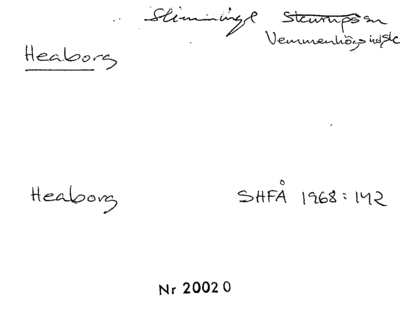 Slimminge Skurups sn
Vemmenhögs hd, Sk
Heaborg
Heaborg SHFÅ 1968:142
Nr 20020